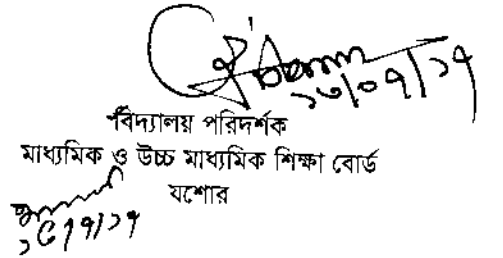 ১৬/০৭/১৭
বিদ্যালয় পরিদর্শক
মাধ্যমিক ও উচ্চ মাধ্যমিক শিক্ষা বোর্ড
যশোর